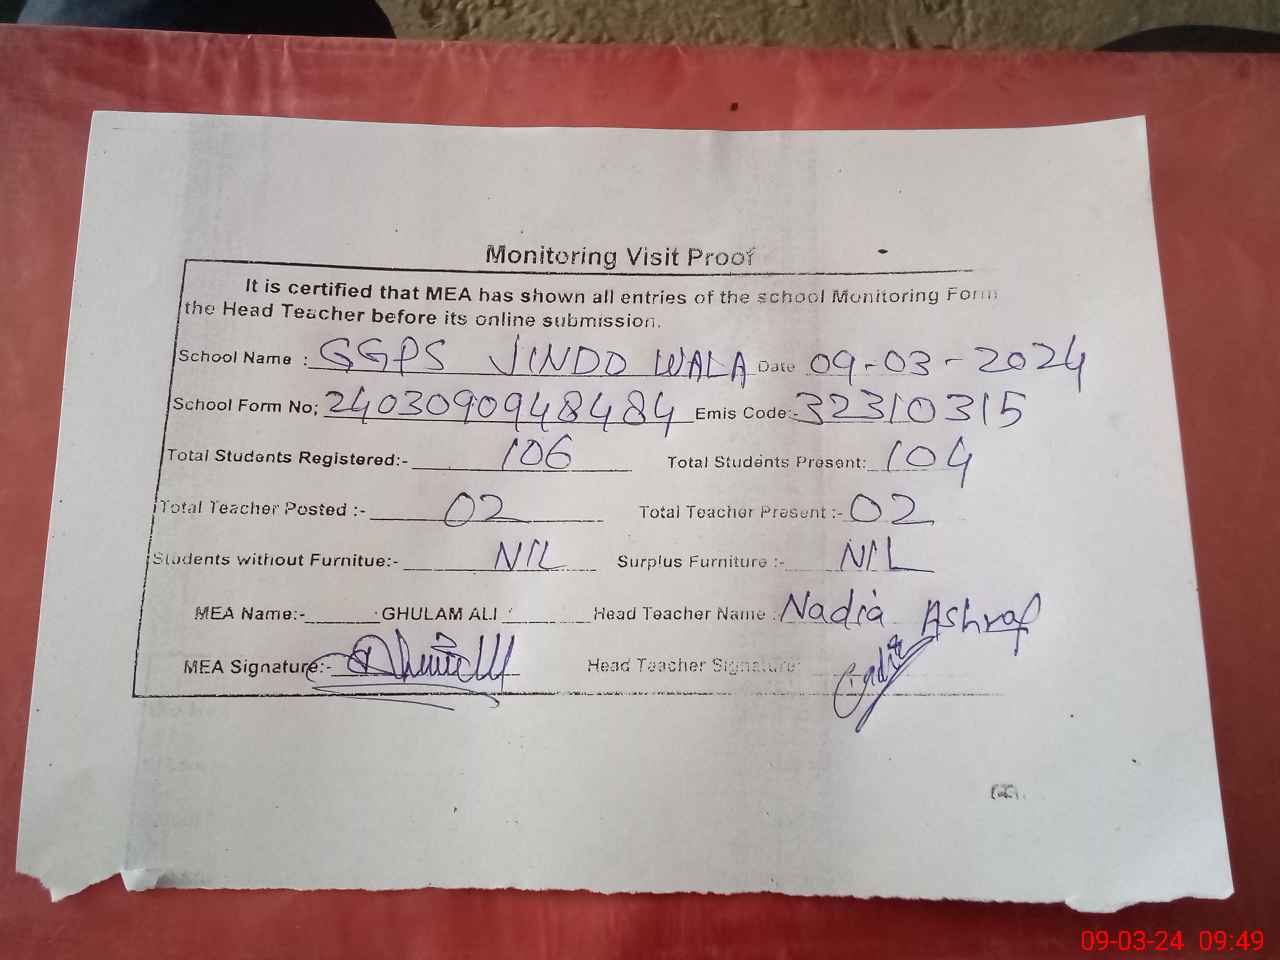 Monitoring Visit Proof
It is certified that MEA has shown all entries of the school Monitoring Form
the Head Teacher before its online submission.
School Name : GGPS JINDO WALA Date 09-03-2024
School Form No; 2403090948484 Emis Code:- 32310315
Total Students Registered:- 106 Total Students Present: 104
Total Teacher Posted :- 02 Total Teacher Present :- 02
Students without Furnitue:- NIL Surplus Furniture :- NIL
MEA Name:- GHULAM ALI Head Teacher Name : Nadia Ashraf
MEA Signature:- Head Teacher Signature:
09-03-24 09:49